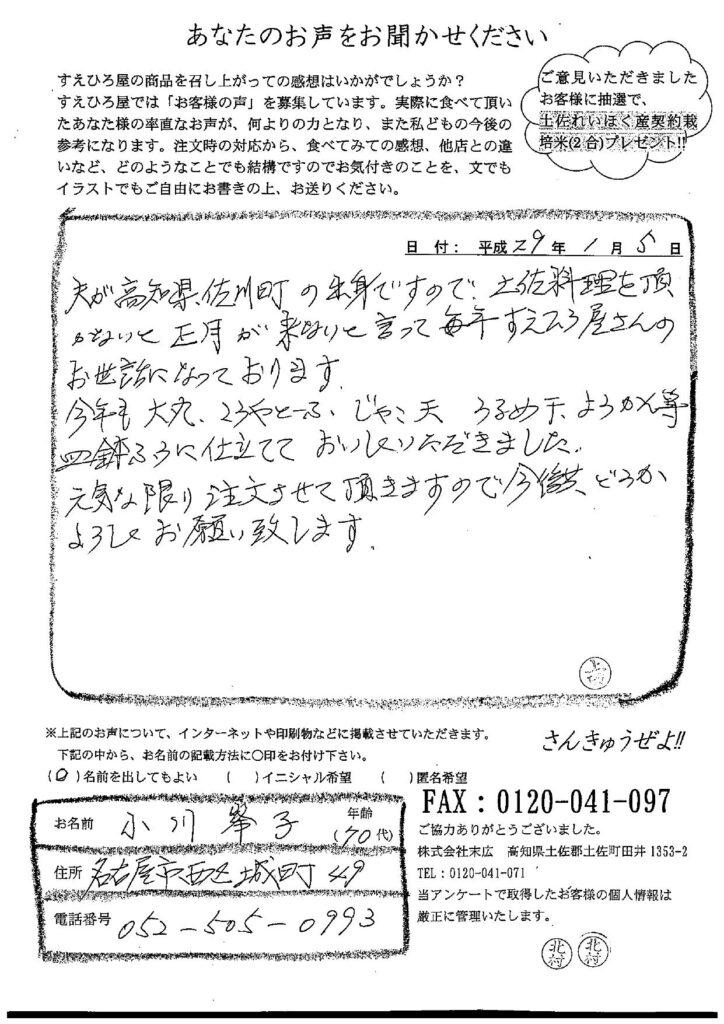 あなたのお声をお聞かせください
すえひろ屋の商品を召し上がっての感想はいかがでしょうか？
すえひろ屋では「お客様の声」を募集しています。実際に食べて頂い
たあなた様の率直なお声が、何よりの力となり、また私どもの今後の
参考になります。注文時の対応から、食べてみての感想、他店との違
いなど、どのようなことでも結構ですのでお気付きのことを、文でも
イラストでもご自由にお書きの上、お送りください。
ご意見いただきました
お客様に抽選で、
土佐れいほく産契約栽
培米(2合)プレゼント!!
日付： 平成 29 年 1 月 5 日
夫が高知県佐川町の出身ですので、土佐料理を頂
かないと正月が来ないと言って毎年すえひろ屋さんの
お世話になっております。
今年も大丸、こうやとーふ、じゃこ天 うるめ干、ようかん等
皿鉢ふうに仕立てて おいしくいただきました。
元気な限り注文させて頂きますので今後共、どうか
よろしくお願い致します。
※上記のお声について、インターネットや印刷物などに掲載させていただきます。
下記の中から、お名前の記載方法に〇印をお付け下さい。
(〇)名前を出してもよい ( )イニシャル希望 ( )匿名希望
さんきゅうぜよ!!
お名前 小川 子 年齢 (70代)
住所 名古屋市西区城町 49
電話番号 052-505-0993
FAX：0120-041-097
ご協力ありがとうございました。
株式会社末広 高知県土佐郡土佐町田井 1353-2
TEL：0120-041-071
当アンケートで取得したお客様の個人情報は
厳正に管理いたします。
北村
北村